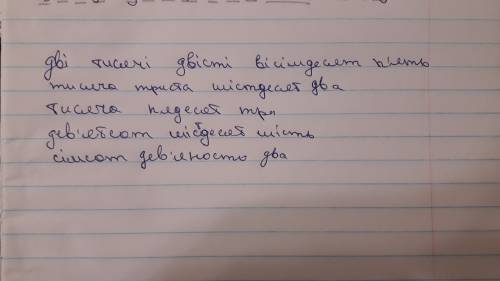 дві тисячі двісті вісімдесят п'ять
тисяча триста шістдесят два
тисяча пядесят три
дев'ятсот шістдесят шість
сімсот дев'яность два